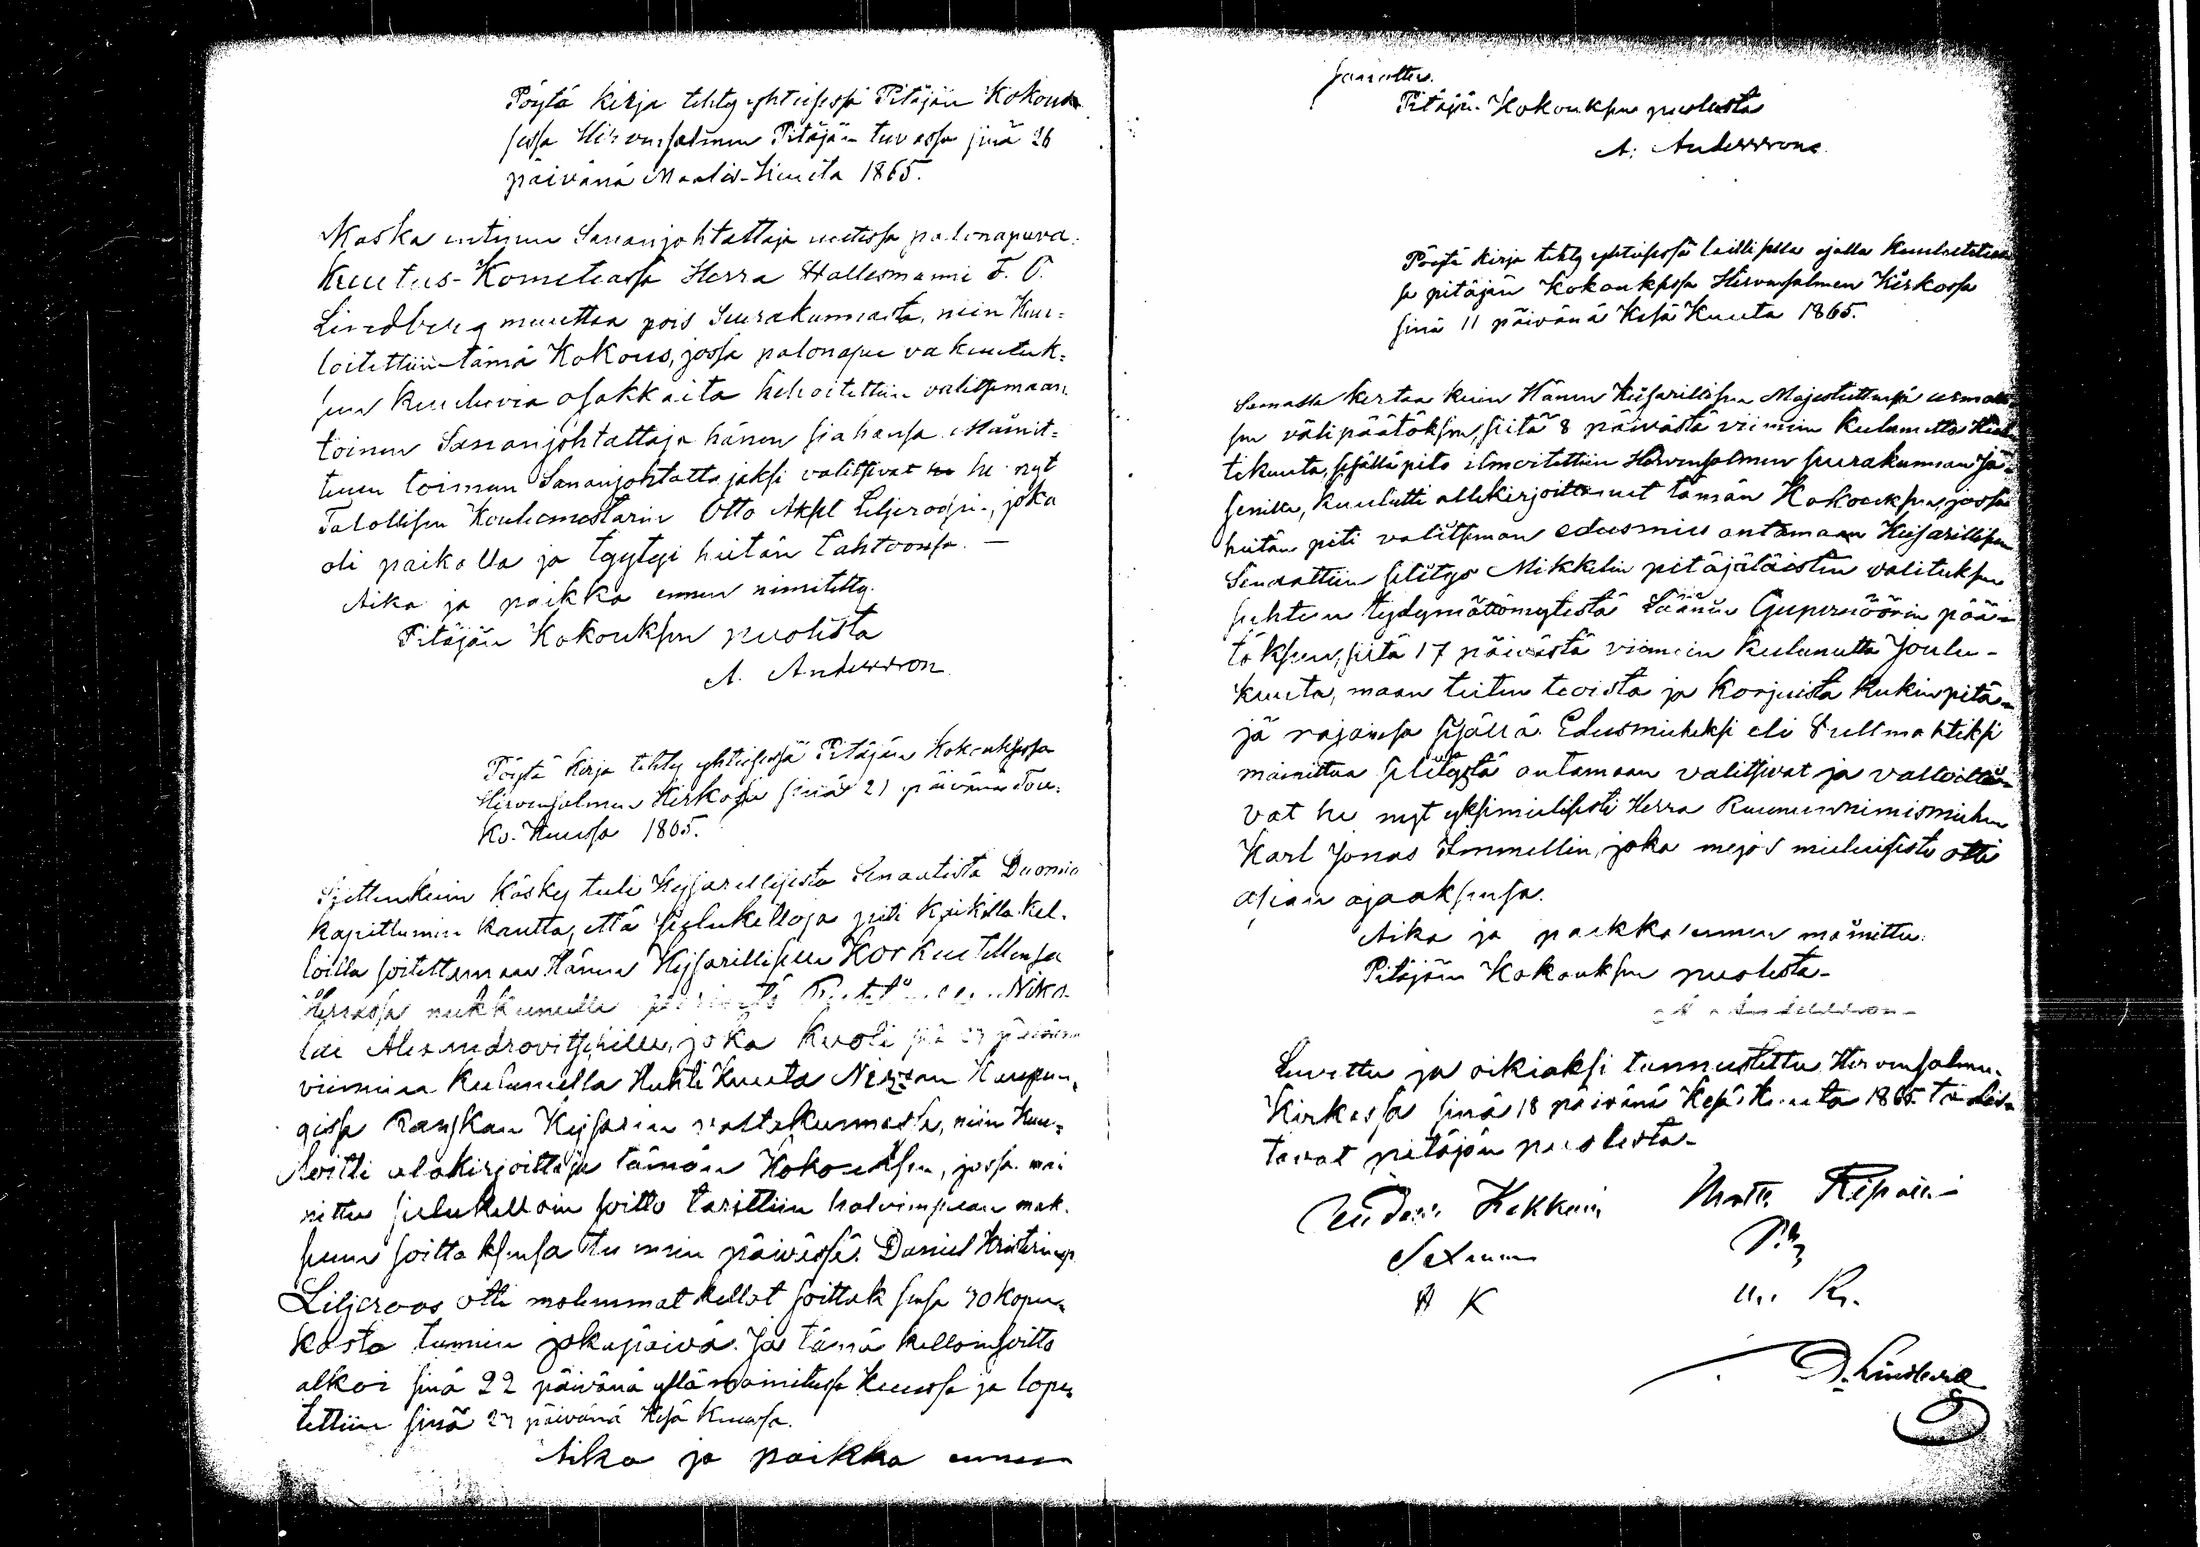 Pöytä kirja tehty yhteisessä Pitäjän Kokouk
sessa Hirvensalmen Pitäjän tuvassa sinä 26
päivänä Maalis-Kuuta 1865.
Koska entinen Sananjohtattaja uutissa palonapuva-
kuutus-Komiteassa Herra Hallesmanni F. O.
Lindberg muuttaa pois Seurakunnasta, niin Kuu-
loitettiin tämä Kokous, jossa palonapu vakuutuk-
seen kuuluvia osakkaita kehoitettiin valitsemaan
toinen Sananjohtattaja hänen siahansa. Mainit-
tuun toimeen Sananjohtattajaksi valitsivat he nyt
Talollisen Koulumestarin Otto Aksel Liljeroosin, joka
oli paikalla ja tyytyi heitän tahtoonsa. —
Aika ja paikka ennen nimitetty.
Pitäjän Kokouksen puolesta
A. Andersson
Pöytä kirja tehty yhteisessä Pitäjän Kokouksessa
Hirvensalmen Kirkossa sinä 21 päivänä Tou-
ko-Kuussa 1865.
Sittenkuin käsky tuli Keisarillisesta Senaatista Duomio
kapitlumin kautta, että sielukelloja piti kaikilla kel-
loilla soitettamaan Hänen Keisarillisen Korkeutellensa
Herrassa nukkuneelle Niko-
lai Alexandrovitschille, joka kuoli päivänä
viimmen kuluneella Huhti Kuuta Nizzan Kaupun-
gissa Ranskan Keisarin valtakunnassa, niin Kuu-
loitti alakirjoittaja tämän Kokouksen, jossa mai
nittu sielukelloin soitto tarittiin halvimpaan mak-
suun soittaksensa tunnin päivässä. Daniel
Liljeroos otti molemmat kellot soittaksensa 70 kopei-
kasta tunnin jokapäivä. Ja tämä kelloinsoitto
alkoi sinä 22 päivänä yllä mainitussa Kuussa ja lope-
tettiin sinä päivänä Kesä Kuussa.
Aika ja paikka ennen
sanottu.
Pitäjän Kokouksen puolesta
A. Andersson
Pöytä kirja tehty yhteisessä laillisella ajalla kuulutetussa
sa pitäjän Kokouksessa Hirvensalmen Kirkossa
sinä 11 päivänä Kesä Kuuta 1865.
Samalla kertaa kuin Hänen Keisarillisen Majesteettinsä armolli
sen välipäätöksen, siitä 8 päivästä viimein kulunutta Huh
tikuuta, sisällä pito ilmoitettiin Hirvensalmen seurakunnan jä-
senille, kuulutti allekirjoittanut tämän Kokouksen, jossa
heitän piti valitseman edusmies antamaan Keisarillisen
Senaattiin selitys Mikkelin pitäjäläisten valituksen
suhteen tydymättömyydestä Läänin Gupernöörin pää-
töksen, siitä 17 päivästä viimein kulunutta Joulu-
kuuta, maan teiten teosta ja korjuista kukin pitä-
jä rajansa sisällä. Edusmieheksi eli Fullmahtiksi
mainittua selitystä antamaan valitsivat ja valtoitti-
vat he nyt yksimielisesti Herra Ruununnimismiehen
Karl Jonas Emmellin, joka myös mieluisesti otti
asian ajaaksensa.
Aika ja paikka ennen mainittu.
Pitäjän Kokouksen puolesta
A. Andersson
Luvettu ja oikiaksi tunnustettu Hirvensalmen
Kirkossa sinä 18 päivänä Kesä Kuuta 1865 todista
tavat pitäjän puolesta.
Kekkoin Matti Ripatti
A K
D. Lindberg